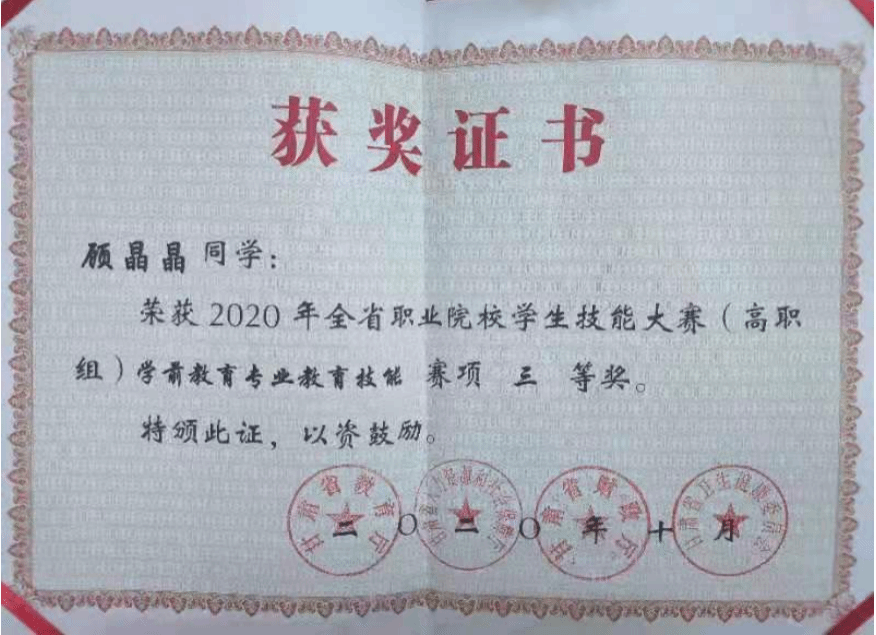 获奖证书
顾晶晶同学：
荣获2020年全省职业院校学生技能大赛（高职
组）学前教育专业教育技能 赛项 三 等奖。
特颁此证，以资鼓励。
甘肃省教育厅
甘肃省人力资源和社会保障厅
甘肃省财政厅
甘肃省卫生健康委员会
二〇二〇年十月